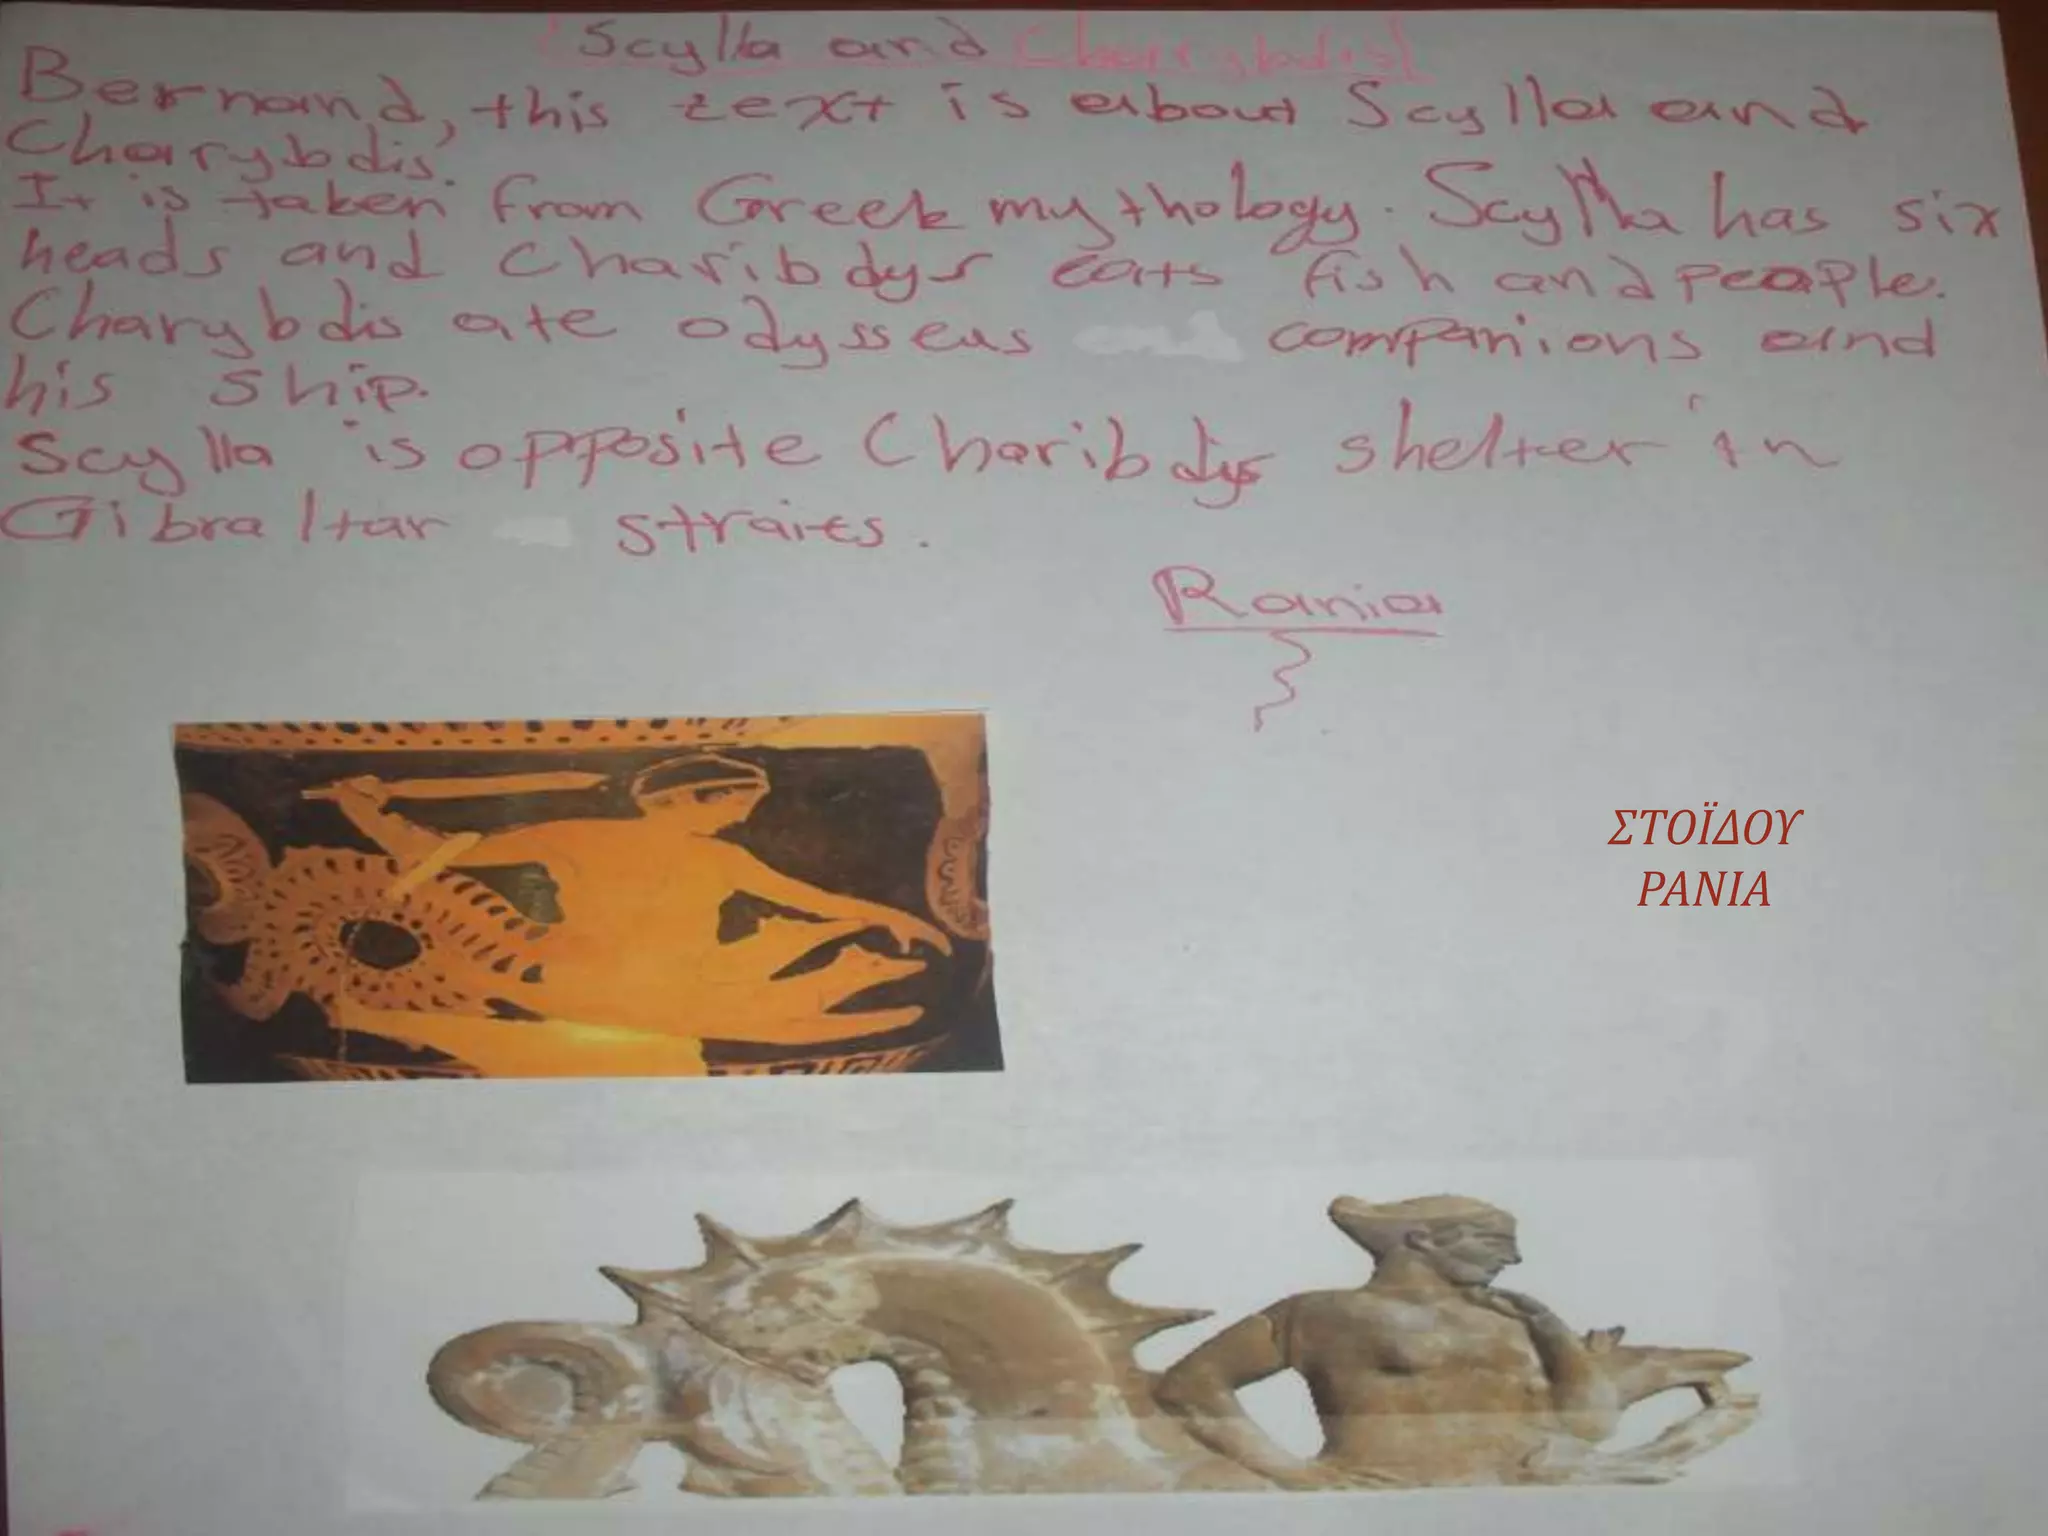 (Scylla and Charrybdis)
Bernand, this text is about Scylla and
Charybdis.
It is taken from Greek mythology. Scylla has six
heads and Charibdys eats fish and people.
Charybdis ate odysseus companions and
his ship.
Scylla is opposite Charibdys shelter in
Gibraltar straits.
Rania
ΣΤΟΪΔΟΥ
ΡΑΝΙΑ